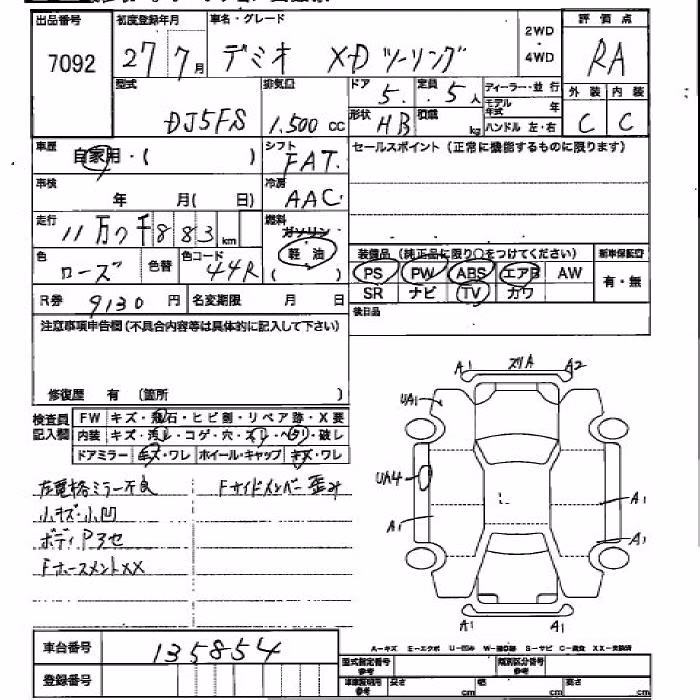 出品番号 初度登録年月 車名・グレード 2WD・4WD 評価点
7092 27 7月 デミオ XDツーリング RA
型式 排気量 ドア 定員 ディーラー・並行 外装 内装
DJ5FS 1.500cc 5. .5人 モデル年式 年 C C
形状 HB 積載 kg ハンドル 左・右
車歴 自家用・( ) シフト FAT. セールスポイント(正常に機能するものに限ります)
車検 年 月(日) 冷房 AAC
走行 11万7千883km 燃料 ガソリン
軽油
( )
色 ローズ 色替 色コード 44R
装備品(純正品に限り○をつけてください) 新車保証書
PS PW ABS エアB AW 有・無
SR ナビ TV カワ
R券 9130円 名変期限 月 日 後日品
注意事項申告欄(不具合内容等は具体的に記入して下さい)
修復歴 有 (箇所 )
検査員記入欄 FW キズ・飛石・ヒビ割・リペア跡・X要
内装 キズ・汚レ・コゲ・穴・スレ・ヘタリ・破レ
ドアミラー キズ・ワレ ホイール・キャップ キズ・ワレ
左電格ミラー不良 Fサイドメンバー歪み
小キズ・小凹
ボディP3セ
FホースメントXX
A1 スリA A2
UA1
UA4
A1
A1
A1
A1 A1
車台番号 135854
登録番号
A-キズ E-エクボ U-凹み W-補修跡 S-サビ C-腐食 XX-交換済
型式指定番号 参考 類別区分番号 参考
車庫証明用 参考 長さ cm 幅 cm 高さ cm